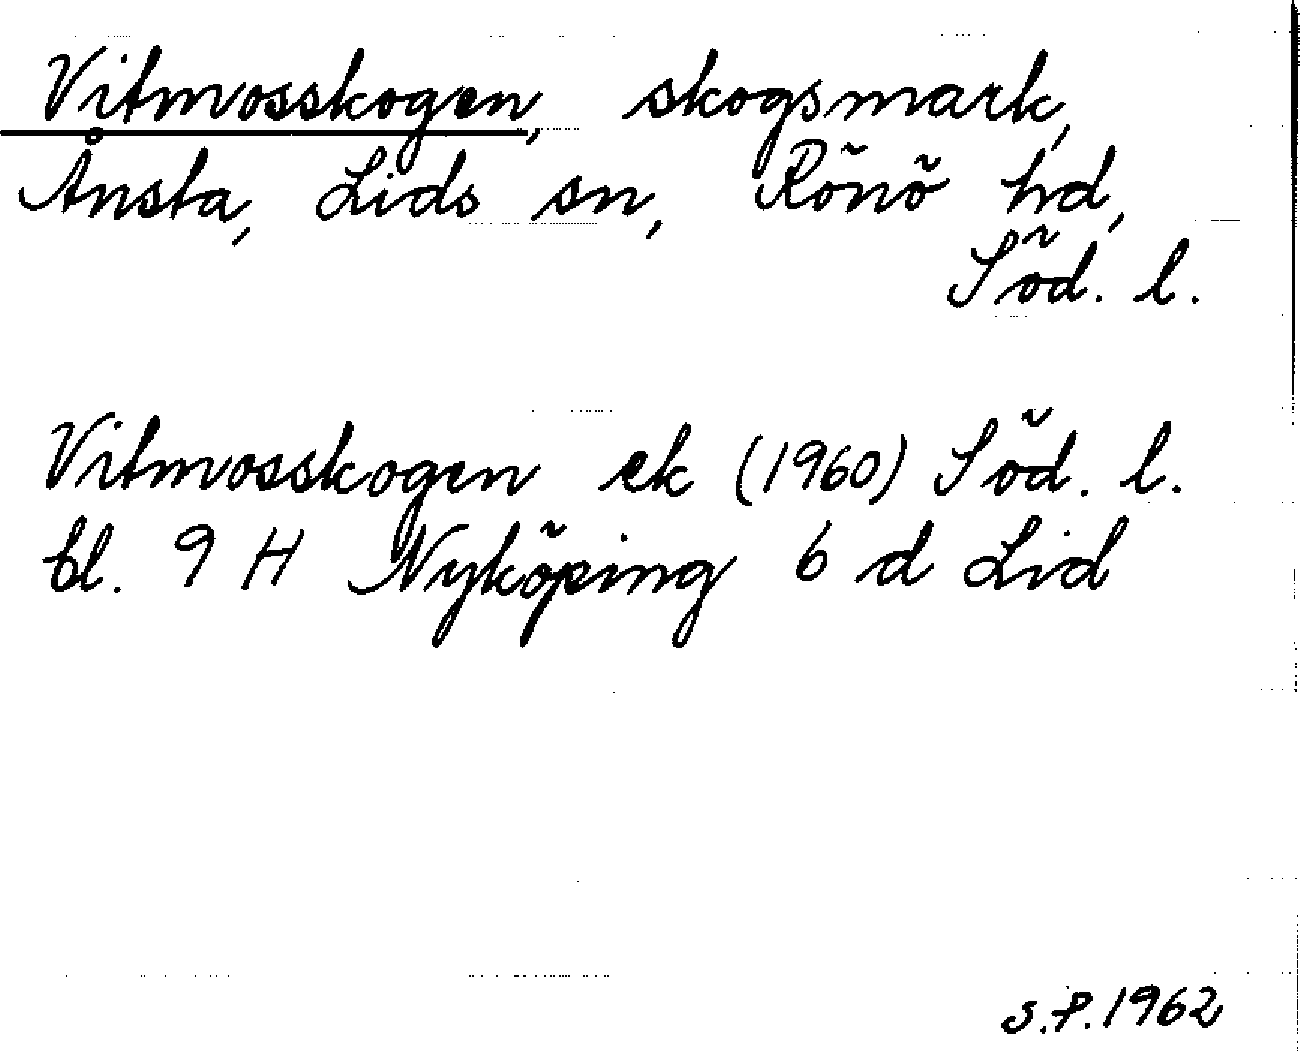 Vitmosskogen, skogsmark,
Ånsta, Lids sn, Rönö hd,
Söd. l.
Vitmosskogen ek (1960) Söd. l.
bl. 9 H Nyköping 6 d Lid
S.P. 1962